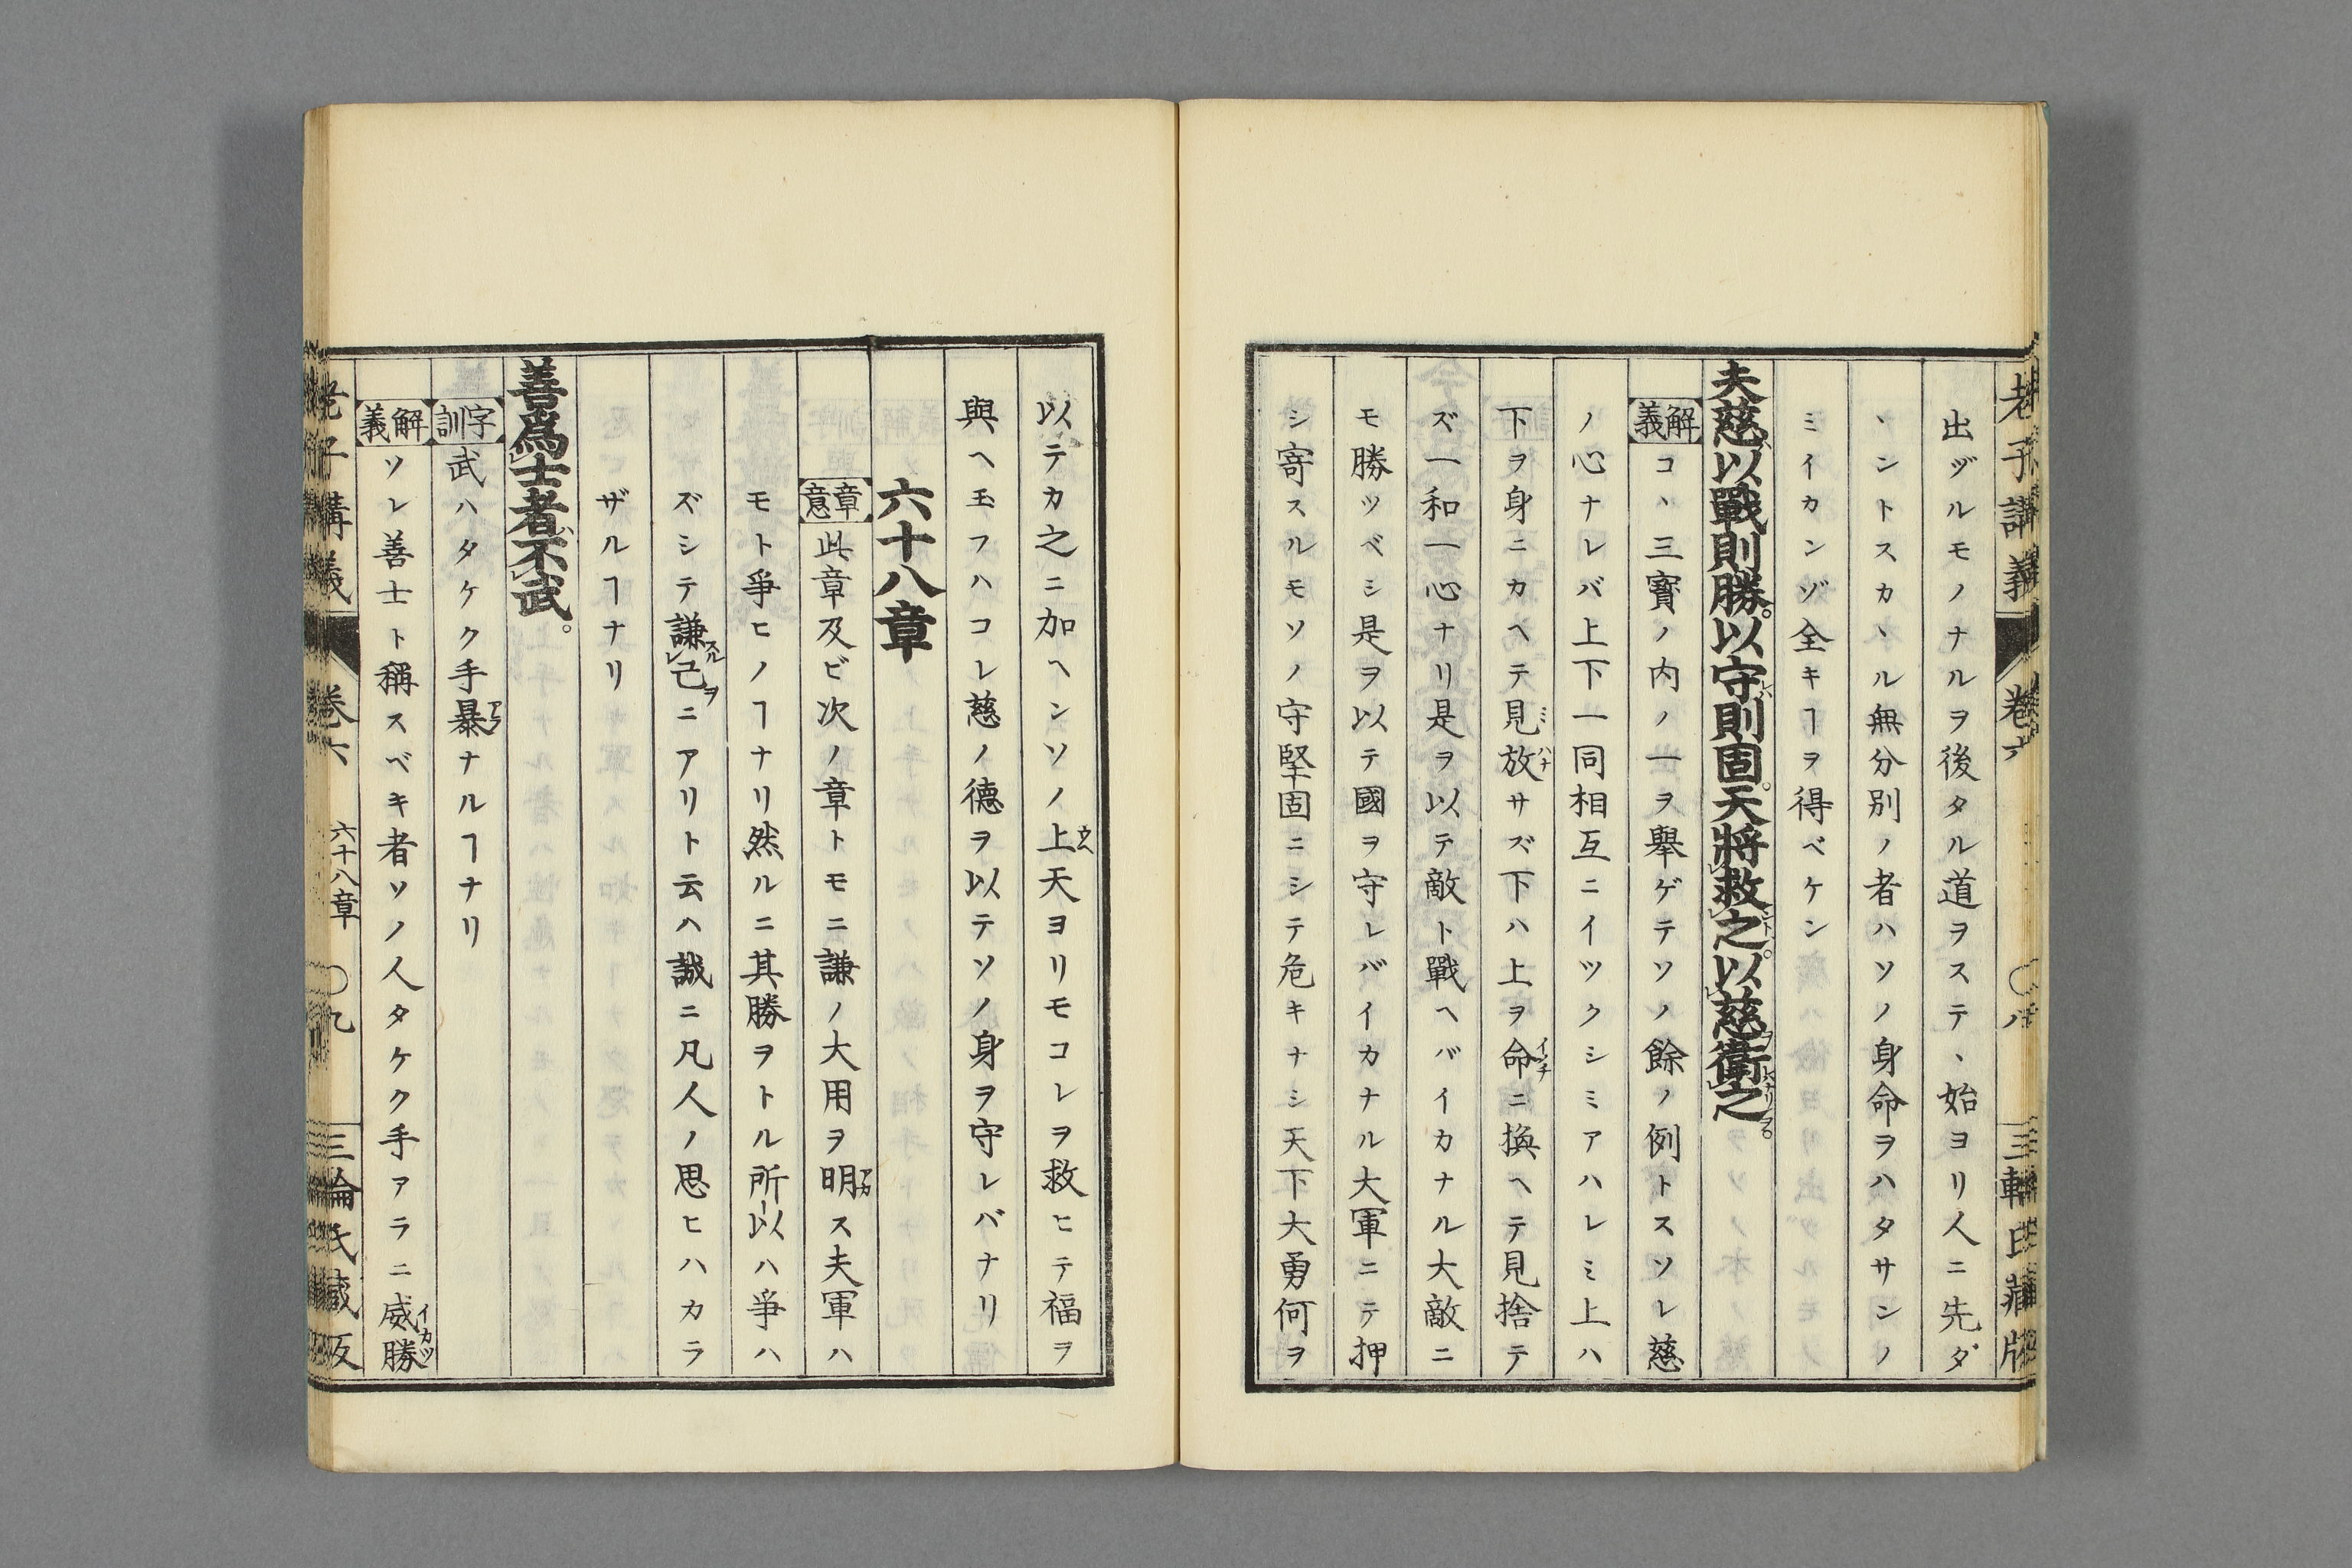 老子講義 卷六 〇八 三輪氏藏版
出ヅルモノナルヲ後タル道ヲステヽ始ヨリ人ニ先ダ
ヽントスカヽル無分別ノ者ハソノ身命ヲハタサンノ
ミイカンゾ全キヿヲ得ベケン
夫慈以戰則勝。以守則固。天將救之。以慈衛之。
解義 コヽ三寶ノ内ノ一ヲ舉ゲテソノ餘ノ例トスソレ慈
ノ心ナレバ上下一同相互ニイツクシミアハレミ上ハ
下ヲ身ニカヘテ見放サズ下ハ上ヲ命ニ換ヘテ見捨テ
ズ一和一心ナリ是ヲ以テ敵ト戰ヘバイカナル大敵ニ
モ勝ツベシ是ヲ以テ國ヲ守レバイカナル大軍ニテ押
シ寄スルモソノ守堅固ニシテ危キナシ天下大勇何ヲ
以テカ之ニ加ヘンソノ上天ヨリモコレヲ救ヒテ福ヲ
與ヘ玉フハコレ慈ノ德ヲ以テソノ身ヲ守レバナリ
六十八章
章意 此章及ビ次ノ章トモニ謙ノ大用ヲ明ス夫軍ハ
モト爭ヒノヿナリ然ルニ其勝ヲトル所以ハ爭ハ
ズシテ謙己ニアリト云ハ誠ニ凡人ノ思ヒハカラ
ザルヿナリ
善爲士者不武。
字訓 武ハタケク手暴ナルヿナリ
解義 ソレ善士ト稱スベキ者ソノ人タケク手アラニ威勝
老子講義 卷六 六十八章 〇九 三輪氏藏版